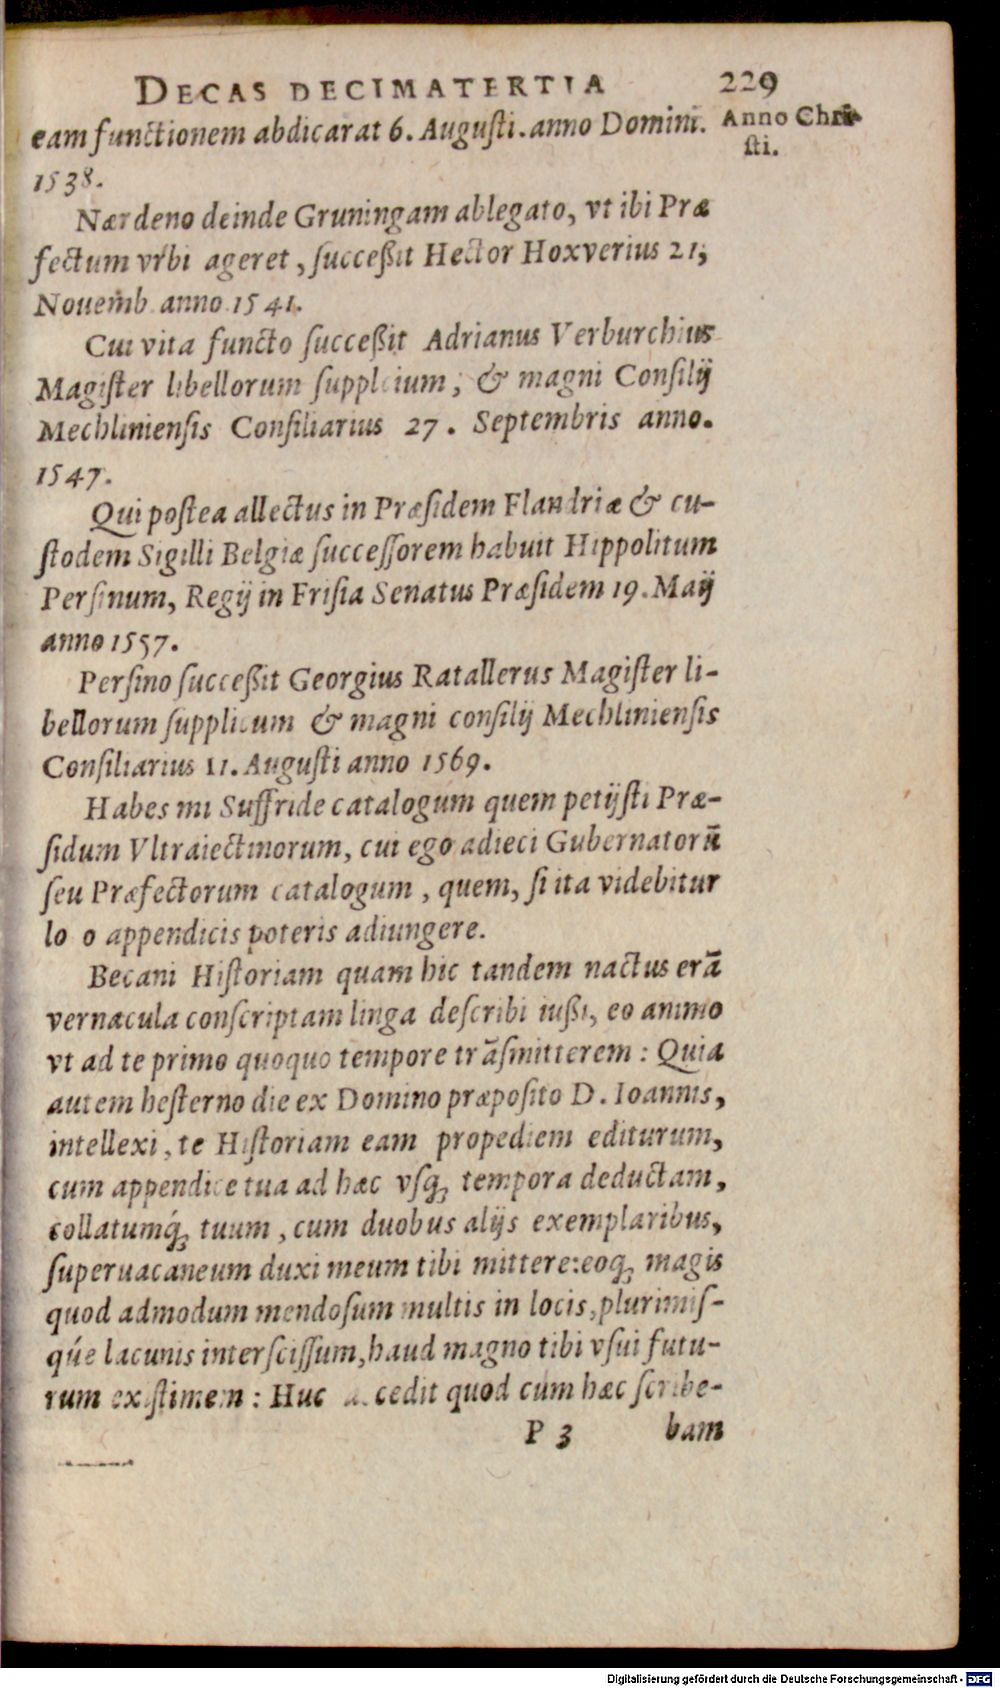 DECAS DECIMATERTIA 229
eam functionem abdicarat 6. Augusti. anno Domini. Anno Chri-
sti.
1538.
Nærdeno deinde Gruningam ablegato, vt ibi Præ
fectum vrbi ageret, succeßit Hector Hoxverius 21,
Nouemb. anno 1541.
Cui vita functo succeßit Adrianus Verburchius
Magister libellorum supplicium, & magni Consilij
Mechliniensis Consiliarius 27. Septembris anno.
1547.
Qui postea allectus in Præsidem Flandriæ & cu-
stodem Sigilli Belgiæ successorem habuit Hippolitum
Persinum, Regij in Frisia Senatus Præsidem 19. Maij
anno 1557.
Persino succeßit Georgius Ratallerus Magister li-
bellorum supplicum & magni consilij Mechliniensis
Consiliarius 11. Augusti anno 1569.
Habes mi Suffride catalogum quem petijsti Præ-
sidum Vltraiectinorum, cui ego adieci Gubernatorū
seu Præfectorum catalogum, quem, si ita videbitur
lo o appendicis poteris adiungere.
Becani Historiam quam hic tandem nactus erā
vernacula conscriptam linga describi iußi, eo animo
vt ad te primo quoquo tempore trāsmitterem: Quia
autem hesterno die ex Domino præposito D. Ioannis,
intellexi, te Historiam eam propediem editurum,
cum appendice tua ad hæc vsq; tempora deductam,
collatumq́; tuum, cum duobus alijs exemplaribus,
superuacaneum duxi meum tibi mittere: eoq; magis
quod admodum mendosum multis in locis, plurimis-
q́ue lacunis interscissum, haud magno tibi vsui futu-
rum existimem: Huc a. cedit quod cum hæc scribe-
P 3 bam
Digitalisierung gefördert durch die Deutsche Forschungsgemeinschaft - DFG